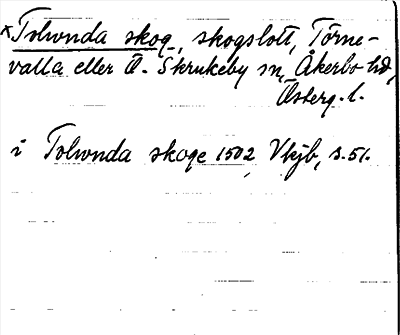 ×Tolvnda skog, skogslott, Törne-
valla eller Ö. Skrukeby sn, Åkerbo hd,
Österg. l.
i Tolvnda skoge 1502 Vkjb, s. 51.